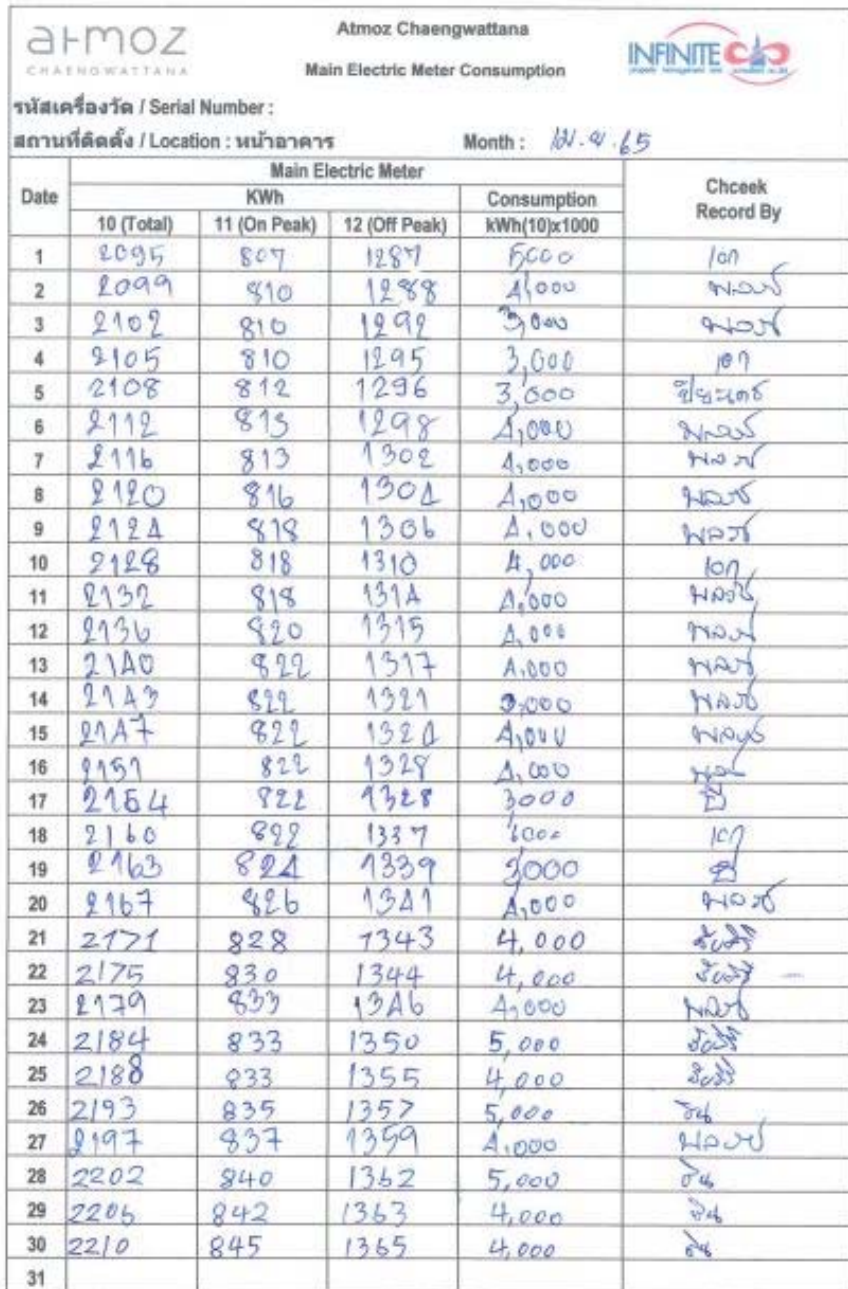 atmoz
CHAENGWATTANA
Atmoz Chaengwattana
Main Electric Meter Consumption
INFINITE
รหัสเครื่องวัด / Serial Number :
สถานที่ติดตั้ง / Location : หน้าอาคาร Month : เม.ย.65
Main Electric Meter
Date KWh Consumption Chceek Record By
10 (Total) 11 (On Peak) 12 (Off Peak) kWh(10)x1000
1 2095 807 1287 5000 เอก
2 2099 810 1288 4,000
3 2102 810 1292 3,000
4 2105 810 1295 3,000 เอก
5 2108 812 1296 3,000
6 2112 813 1298 4,000
7 2116 813 1302 4,000
8 2120 816 1304 4,000
9 2124 818 1306 4,000
10 2128 818 1310 4,000 เอก
11 2132 818 1314 4,000
12 2136 820 1315 4,000
13 2140 822 1317 4,000
14 2143 822 1321 3,000
15 2147 822 1324 4,000
16 2151 822 1328 4,000
17 2154 822 1328 3000
18 2160 822 1337 6000 เอก
19 2163 824 1339 3000
20 2167 826 1341 4,000
21 2171 828 1343 4,000
22 2175 830 1344 4,000
23 2179 833 1346 4,000
24 2184 833 1350 5,000
25 2188 833 1355 4,000
26 2193 835 1357 5,000
27 2197 837 1359 4,000
28 2202 840 1362 5,000
29 2206 842 1363 4,000
30 2210 845 1365 4,000
31